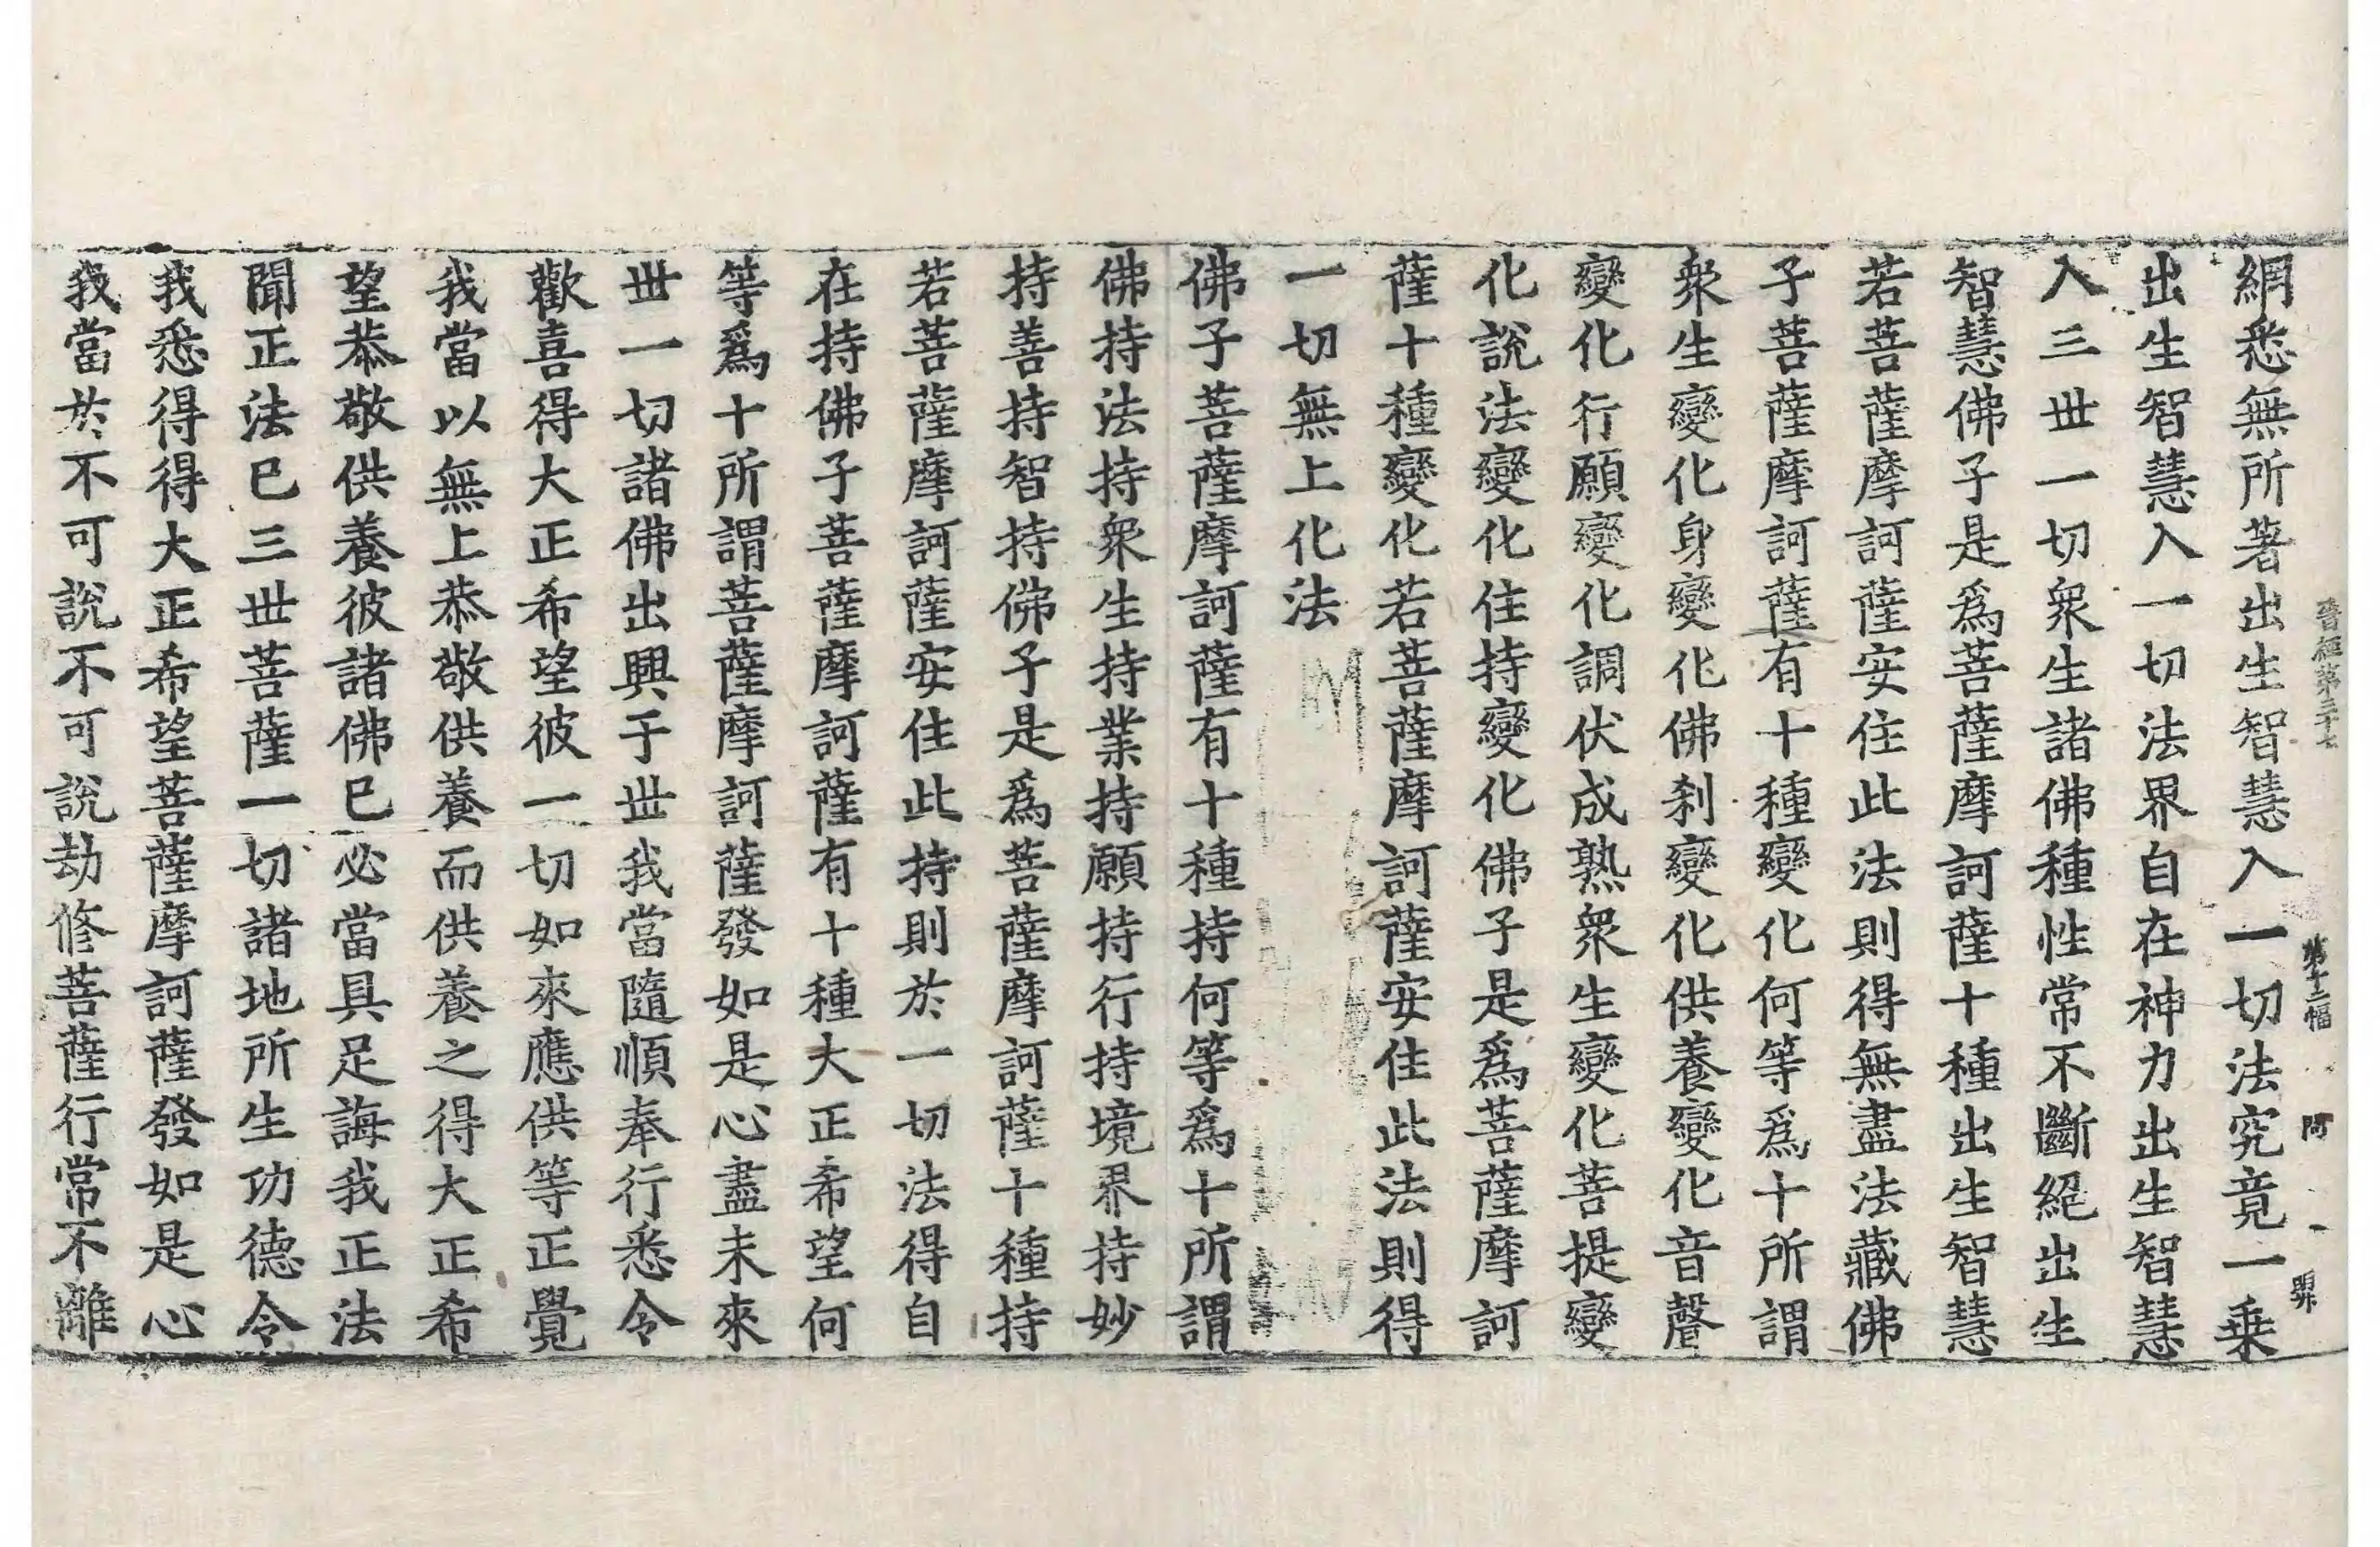 晉經第三十七　第十二幅　阿
網悉無所著出生智慧入一切法究竟一乗
出生智慧入一切法界自在神力出生智慧
入三世一切衆生諸佛種性常不斷絕出生
智慧佛子是爲菩薩摩訶薩十種出生智慧
若菩薩摩訶薩安住此法則得無盡法藏佛
子菩薩摩訶薩有十種變化何等爲十所謂
衆生變化身變化佛刹變化供養變化音聲
變化行願變化調伏成熟衆生變化菩提變
化説法變化住持變化佛子是爲菩薩摩訶
薩十種變化若菩薩摩訶薩安住此法則得
一切無上化法
佛子菩薩摩訶薩有十種持何等爲十所謂
佛持法持衆生持業持願持行持境界持妙
持善持智持佛子是爲菩薩摩訶薩十種持
若菩薩摩訶薩安住此持則於一切法得自
在持佛子菩薩摩訶薩有十種大正希望何
等爲十所謂菩薩摩訶薩發如是心盡未來
世一切諸佛出興于世我當隨順奉行悉令
歡喜得大正希望彼一切如來應供等正覺
我當以無上恭敬供養而供養之得大正希
望恭敬供養彼諸佛已必當具足誨我正法
聞正法已三世菩薩一切諸地所生功德令
我悉得得大正希望菩薩摩訶薩發如是心
我當於不可説不可説劫修菩薩行常不離